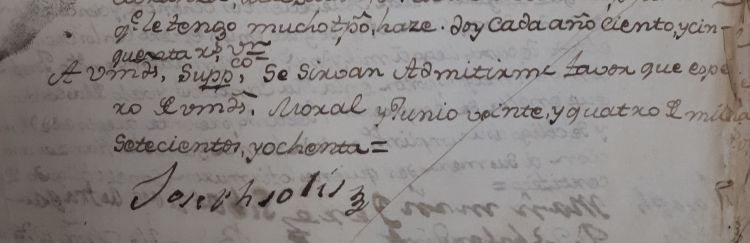 q.e le tengo mucho tpõ, haze. doy cada año ciento, y cin-
quenta r.s v.n
A vmds, Supp.co, Se Sirvan Admitirme favor que espe-
ro de vmds, Moral y Junio veinte, y quatro de mil
Setecientos, y ochenta=
Joseph solis